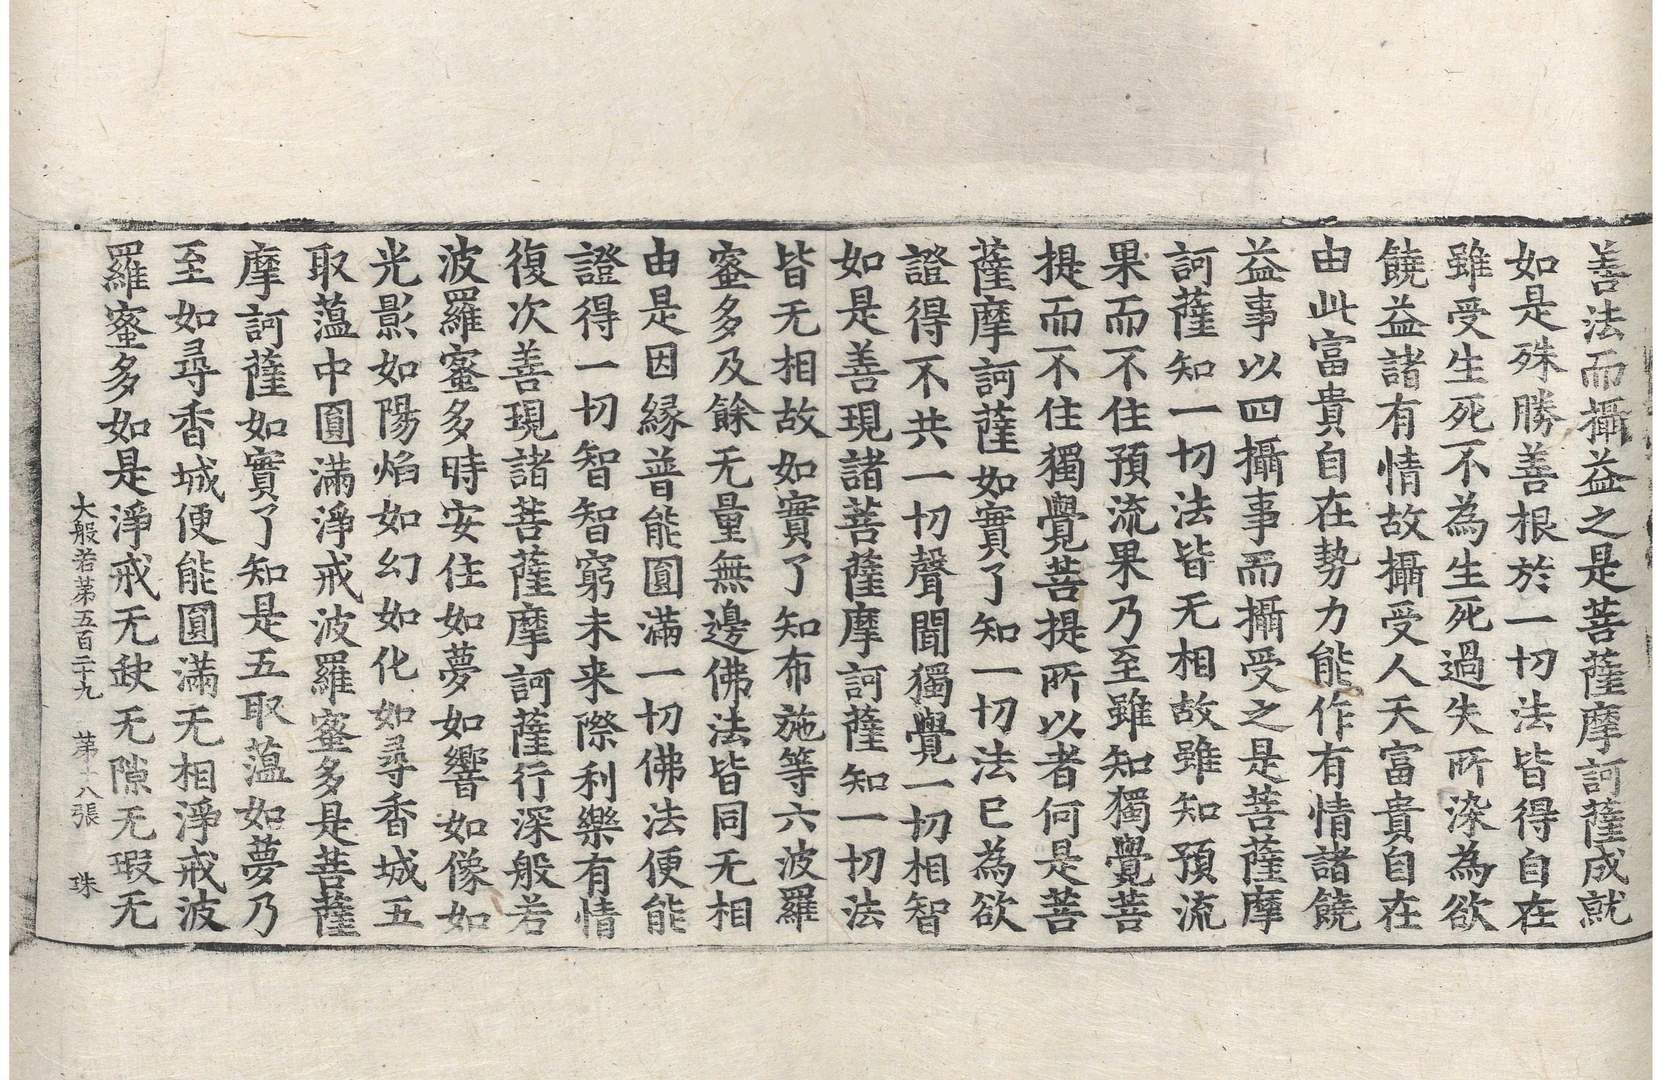 善法而攝益之是菩薩摩訶薩成就
如是殊勝善根於一切法皆得自在
雖受生死不為生死過失所染為欲
饒益諸有情故攝受人天富貴自在
由此富貴自在勢力能作有情諸饒
益事以四攝事而攝受之是菩薩摩
訶薩知一切法皆无相故雖知預流
果而不住預流果乃至雖知獨覺菩
提而不住獨覺菩提所以者何是菩
薩摩訶薩如實了知一切法已為欲
證得不共一切聲聞獨覺一切相智
如是善現諸菩薩摩訶薩知一切法
皆无相故如實了知布施等六波羅
蜜多及餘无量無邊佛法皆同无相
由是因緣普能圓滿一切佛法便能
證得一切智智窮未来際利樂有情
復次善現諸菩薩摩訶薩行深般若
波羅蜜多時安住如夢如響如像如
光影如陽焰如幻如化如尋香城五
取蕰中圓滿淨戒波羅蜜多是菩薩
摩訶薩如實了知是五取蕰如夢乃
至如尋香城便能圓滿无相淨戒波
羅蜜多如是淨戒无缺无隙无瑕无
大般若第五百二十九　第十八張　珠